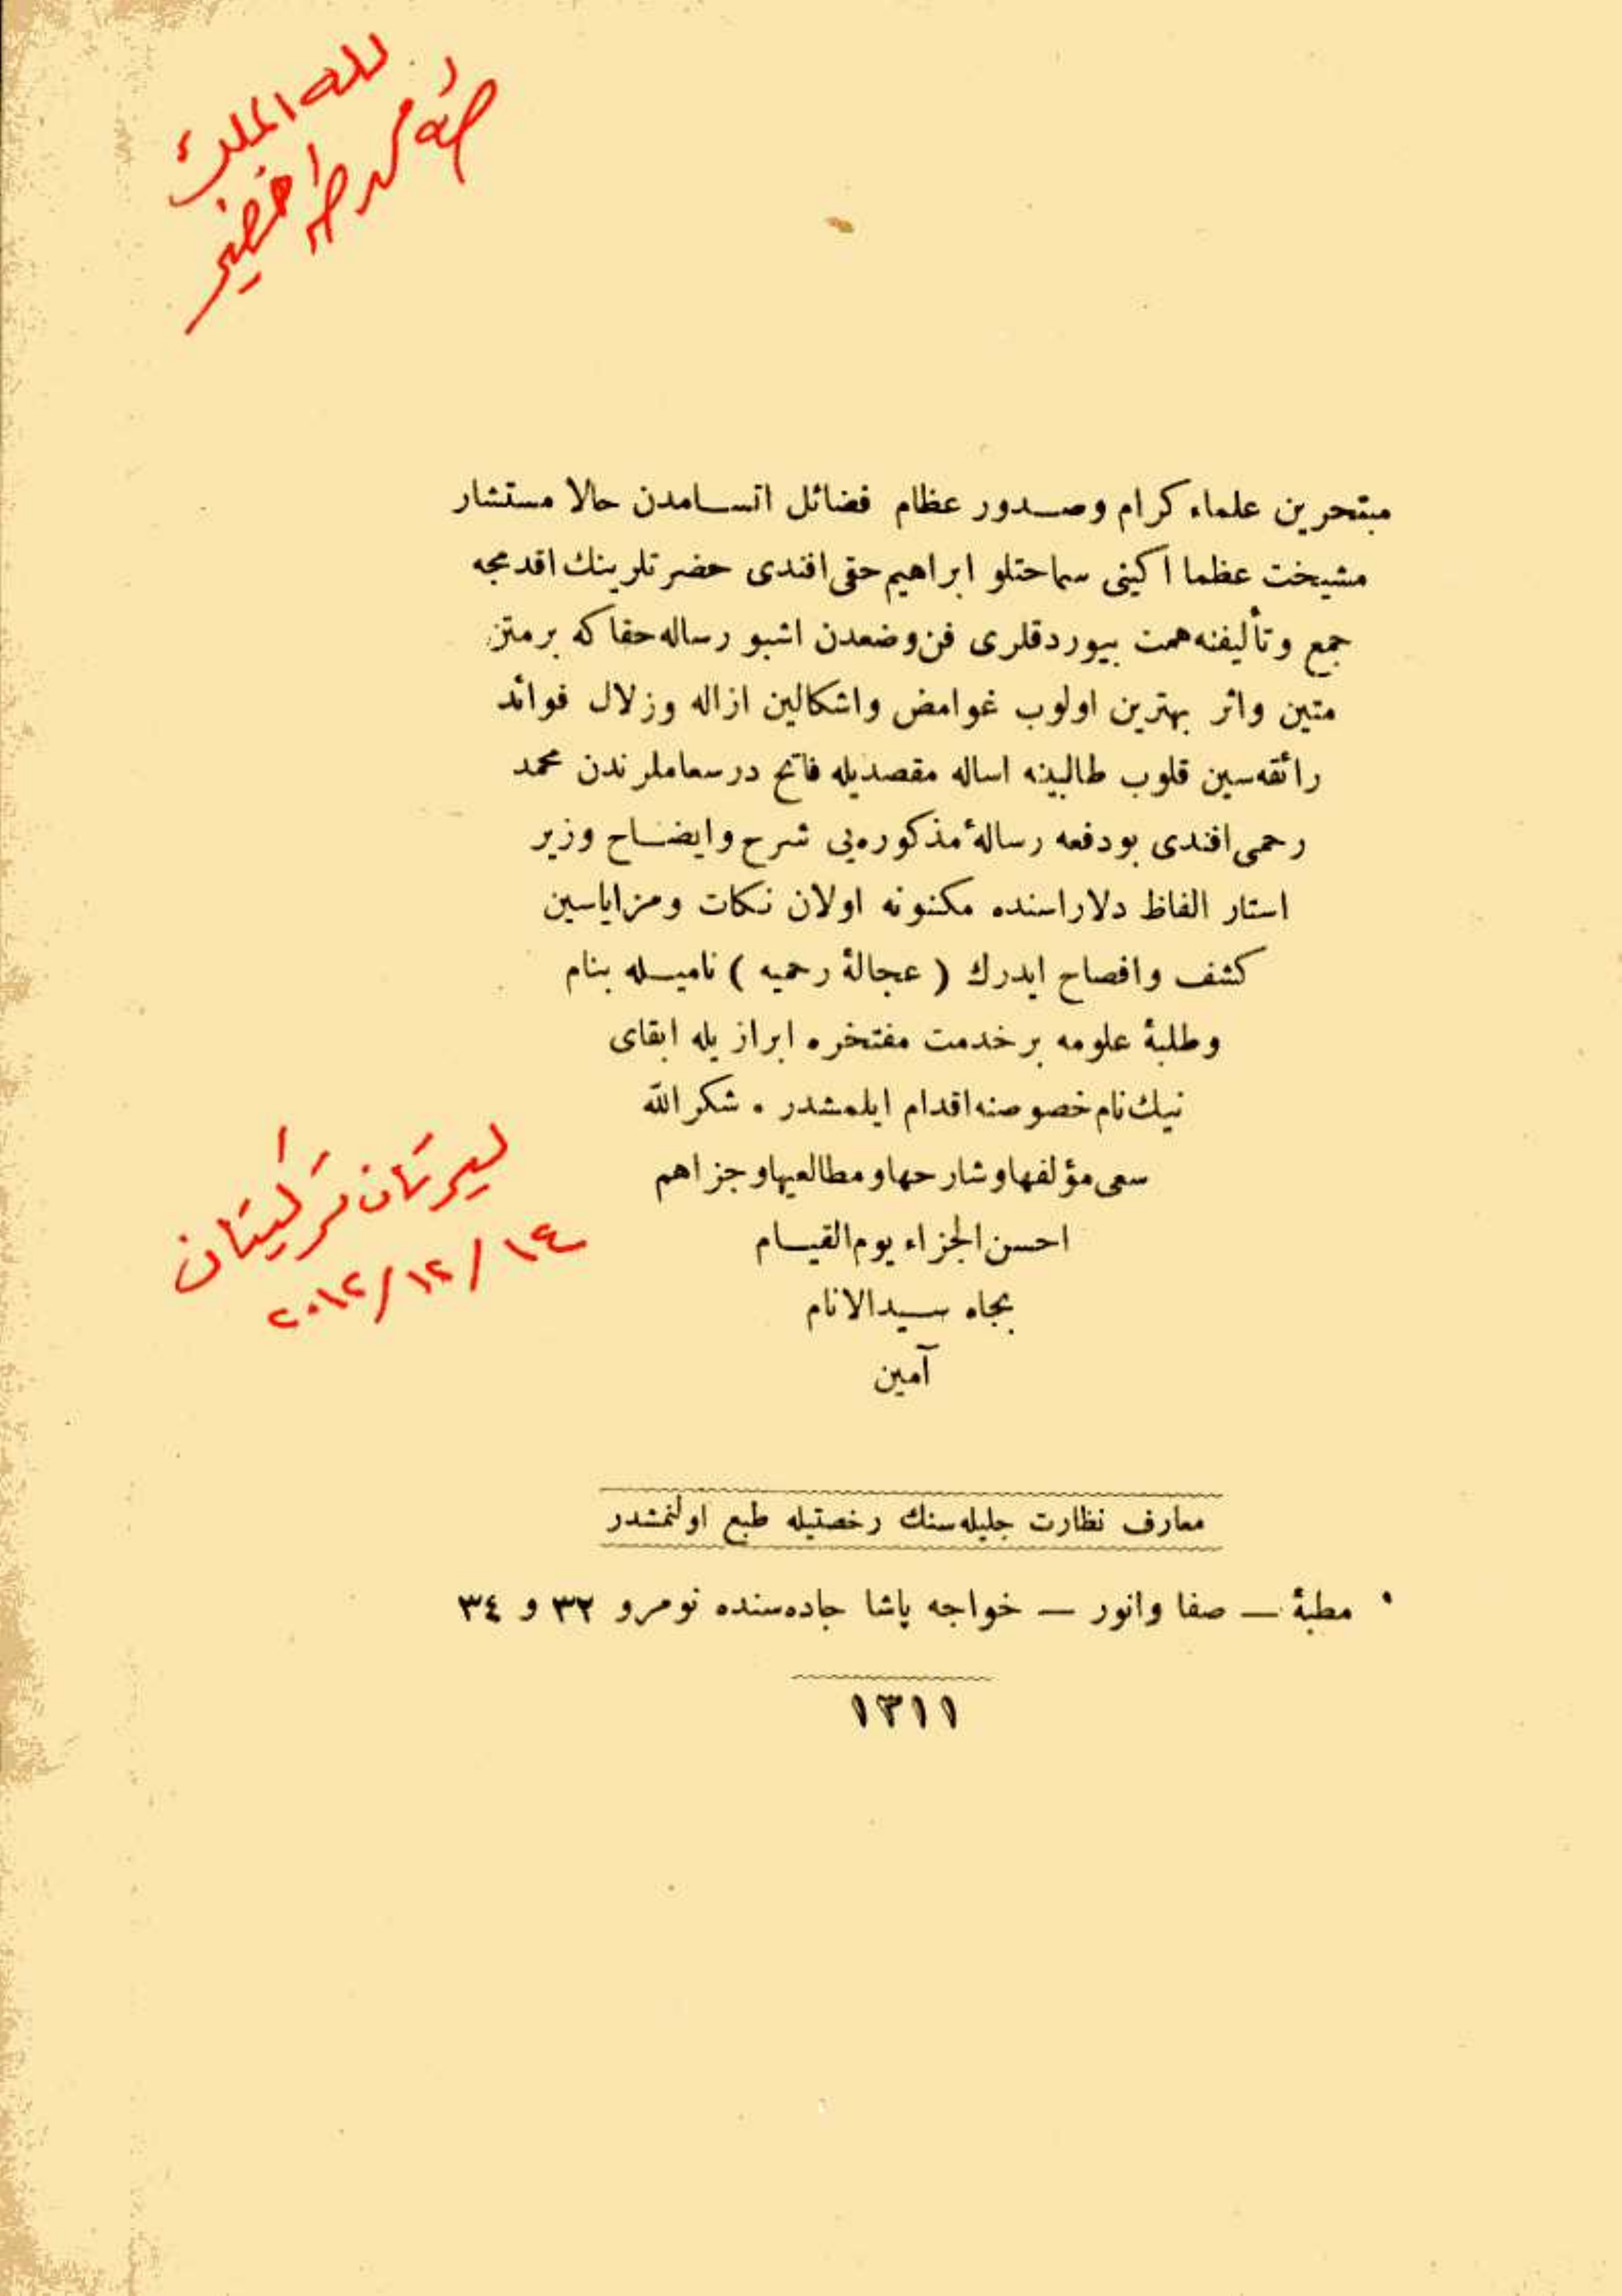 لله الملك
طه خضير
مبتحرين علماء كرام وصدور عظام فضائل اتسامدن حالا مستشار
مشيخت عظما اكينى سماحتلو ابراهيم حقى افندى حضرتلرينك اقدمجه
جمع وتأليفنه همت بيوردقلرى فن وضعدن اشبو رساله حقاكه بر متن
متين واثر بهترين اولوب غوامض واشكالين ازاله وزلال فوائد
رائقه‌سين قلوب طالبينه اساله مقصديله فاتح درسعاملرندن محمد
رحمى افندى بودفعه رسالهٔ مذكوره‌يى شرح وايضاح وزير
استار الفاظ دلاراسنده مكنونه اولان نكات ومزاياسين
كشف وافصاح ايدرك ( عجالهٔ رحميه ) ناميله بنام
وطلبهٔ علومه بر خدمت مفتخره ابراز يله ابقاى
نيك نام خصوصنه اقدام ايلمشدر . شكر الله
سعى مؤلفها وشارحها ومطالعيها وجزاهم
احسن الجزاء يوم القيام
بجاه سيد الانام
آمين
١٤/١٢/٢٠١٢
معارف نظارت جليله‌سنك رخصتيله طبع اولنمشدر
مطبهٔ — صفا وانور — خواجه پاشا جاده‌سنده نومرو ٣٢ و ٣٤
١٣١١